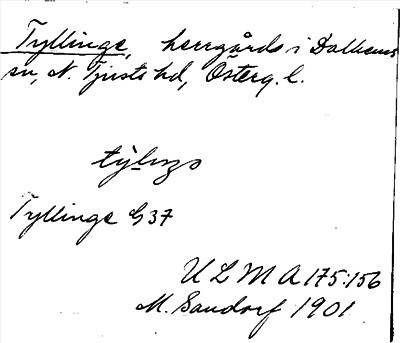 Tyllinge, herrgård i Dalhems
sn, N. Tjusts hd, Österg. l.
Tyllinge G 37
U L M A 175:156
M. Sandorf 1901